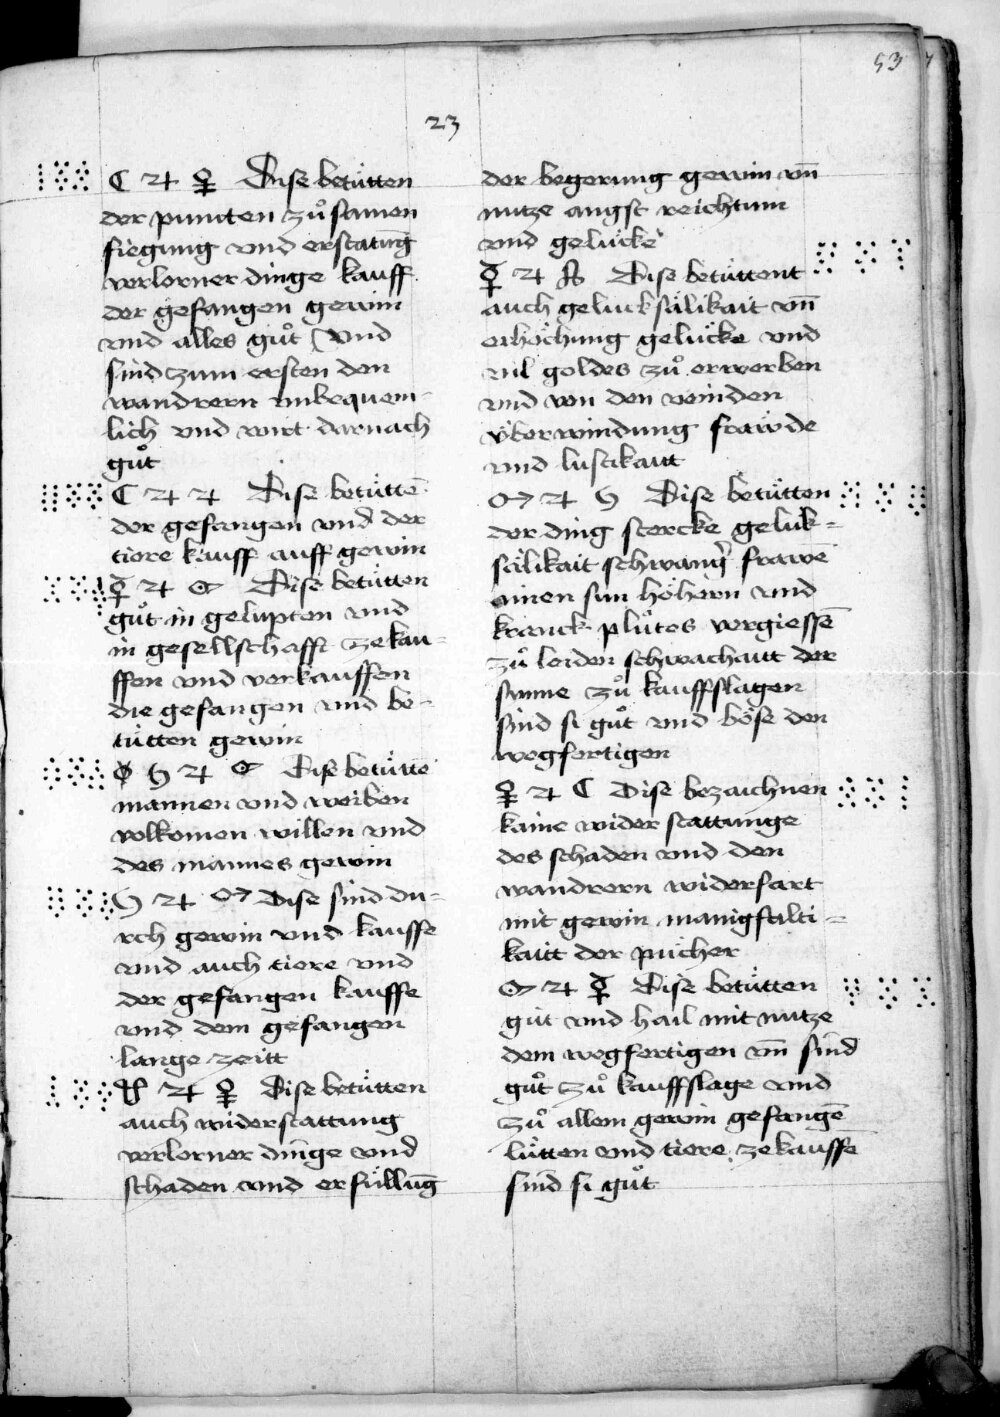 53
23
☾ ♃ ♀ Dise betuͤtten
der puncten zuͦ samen
fiegung vnd erstatūg
verlorner dinge kauff
der gefangen gewin
vnd alles guͦt Vnd
sind zum ersten den
wandrern vnbequem-
lich vnd wirt darnach
guͦt
☾ ♃ ♃ Dise betuͤttē
der gefangen vnd der
tiere kauff auff gewin
☿ ♃ ☉ Dise betuͤtten
guͦt in gelupten vnd
in gesellschafft ze kau-
ffen vnd verkauffen
die gefangen vnd be-
tuͤtten gewin
♄ ♃ ☉ Dise betuͤttē
mannen vnd weiben
volkomen willen vnd
des mannes gewin
♄ ♃ ♂ Dise sind du-
rch gewin vnd kauffe
vnd auch tiere vnd
der gefangen kauffe
vnd dem gefangen
lange zeitt
♃ ♀ Dise betuͤtten
auch widerstattung
verlorner dinge vnd
schaden vnd erfuͤllūg
der begerung gewin vn̄
nutze angst reichtum
vnd geluͤcke
☿ ♃ ☊ Dise betuͤttent
auch geluck saͤlikait vn̄
erhoͤchung geluͤcke vnd
vil goldes zuͦ erwerben
vnd von den veinden
vͤberwindung froͤwde
vnd lustikaitt
♂ ♃ ♄ Dise betuͤtten
der ding stercke geluk-
saͤlikait schwang̃ frawē
ainen sun hoͤhern vnd
kranck pluͤtes vergiessē
zuͦ leiden schwachait der
sunne zuͦ kauffslagen
sind si guͦt vnd boͤse den
wegfertigen
♀ ♃ ☾ Dise bezaichnen
kaine wider stattunge
des schaden vnd den
wandrern widerfart
mit gewin manigfalti-
kaitt der puͤcher
♂ ♃ ☿ Dise betuͤtten
guͦt vnd hail mit nutze
dem wegfertigen vn̄ sind
guͦt zuͦ kauffslage vnd
zuͦ allem gewin gefangē
luͤtten vnd tiere ze kauffē
sind si guͦt